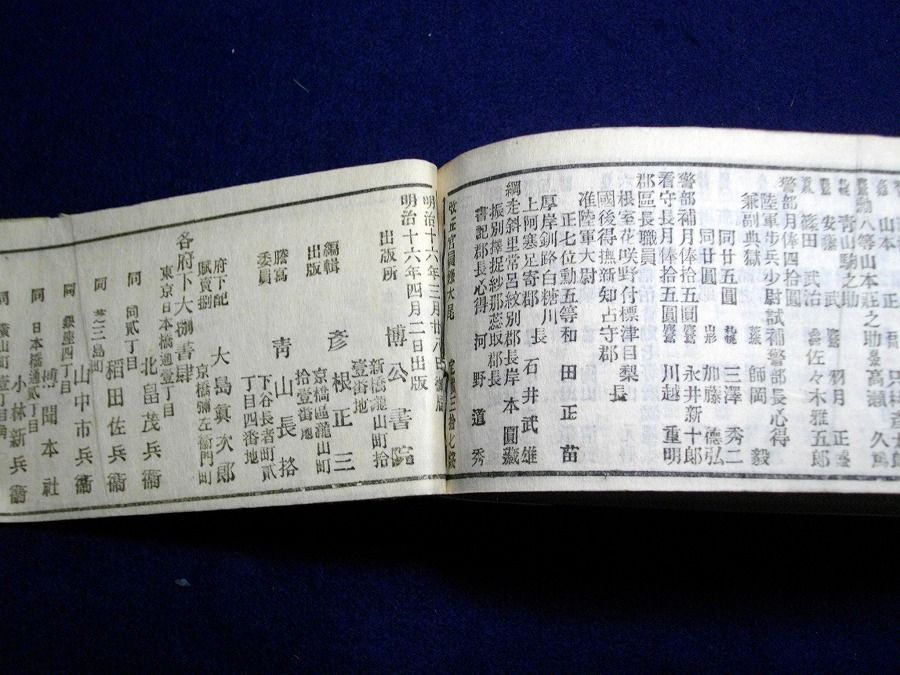 勲八等山本莊之助
青山駒之助 羽月正盛
安藤武
篠田武治 佐々木雅五郎
警部月俸四拾圓
陸軍歩兵少尉試補警部長心得
兼副典獄 師岡毅
同廿五圓 三澤秀二
同廿圓 加藤德弘
警部補月俸拾五圓 永井新十郎
看守長月俸拾五圓 川越重明
郡區長職員
根室花咲野付標津目梨長
國後得撫新知占守郡
准陸軍大尉
正七位勳五等和田正苗
厚岸釧路白糠川長
上阿寒足寄郡 石井武雄
網走斜里常呂紋別郡長岸本圓藏
振別擇捉紗那蘂取郡長
書記郡長心得 河野道秀
改正官員録大尾
明治十六年三月廿八日
明治十六年四月二日出版
出版所 博公書院
新橋瀧山町拾
壹街地
編輯
出版 彥根正三
京橋區瀧山町
拾壹街地
謄寫
委員 青山長格
下谷長者町貳
丁目四番地
府下配
賦賣捌 大島眞次郎
京橋彌左衞門町
各府下大捌書肆
東京日本橋通壹丁目
北畠茂兵衞
同貳丁目
稻田佐兵衞
同芝三島町
山中市兵衞
同銀座四丁目
博聞本社
同日本橋通貳丁目
小林新兵衞
同橫山町壹丁目